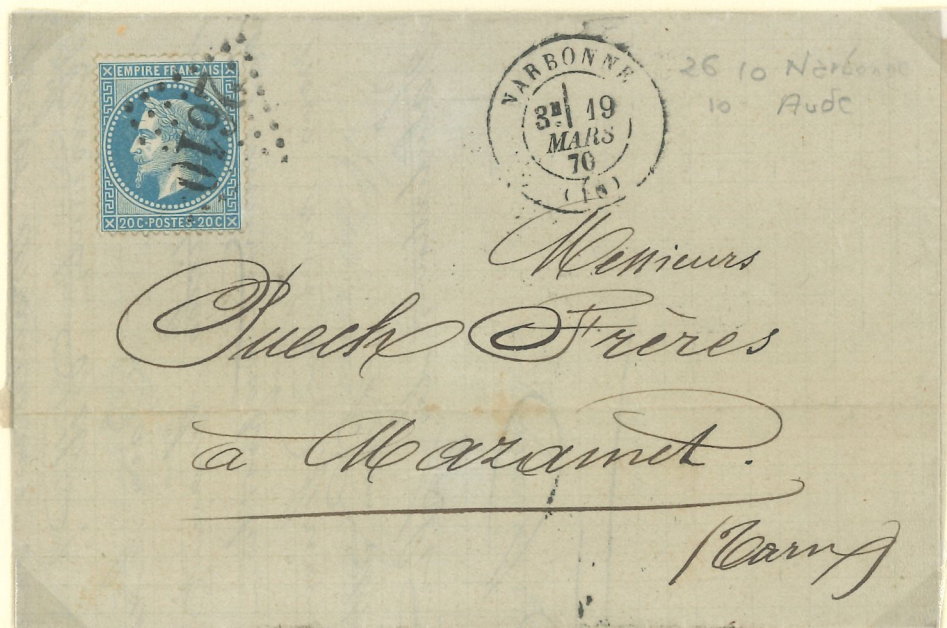 EMPIRE FRANCAIS
2610
20C·POSTES·20C
NARBONNE
3E 19
MARS
70
(10)
26 10 Narbonne
10 Aude
Messieurs
Puech Frères
à Mazamet.
(Tarn)